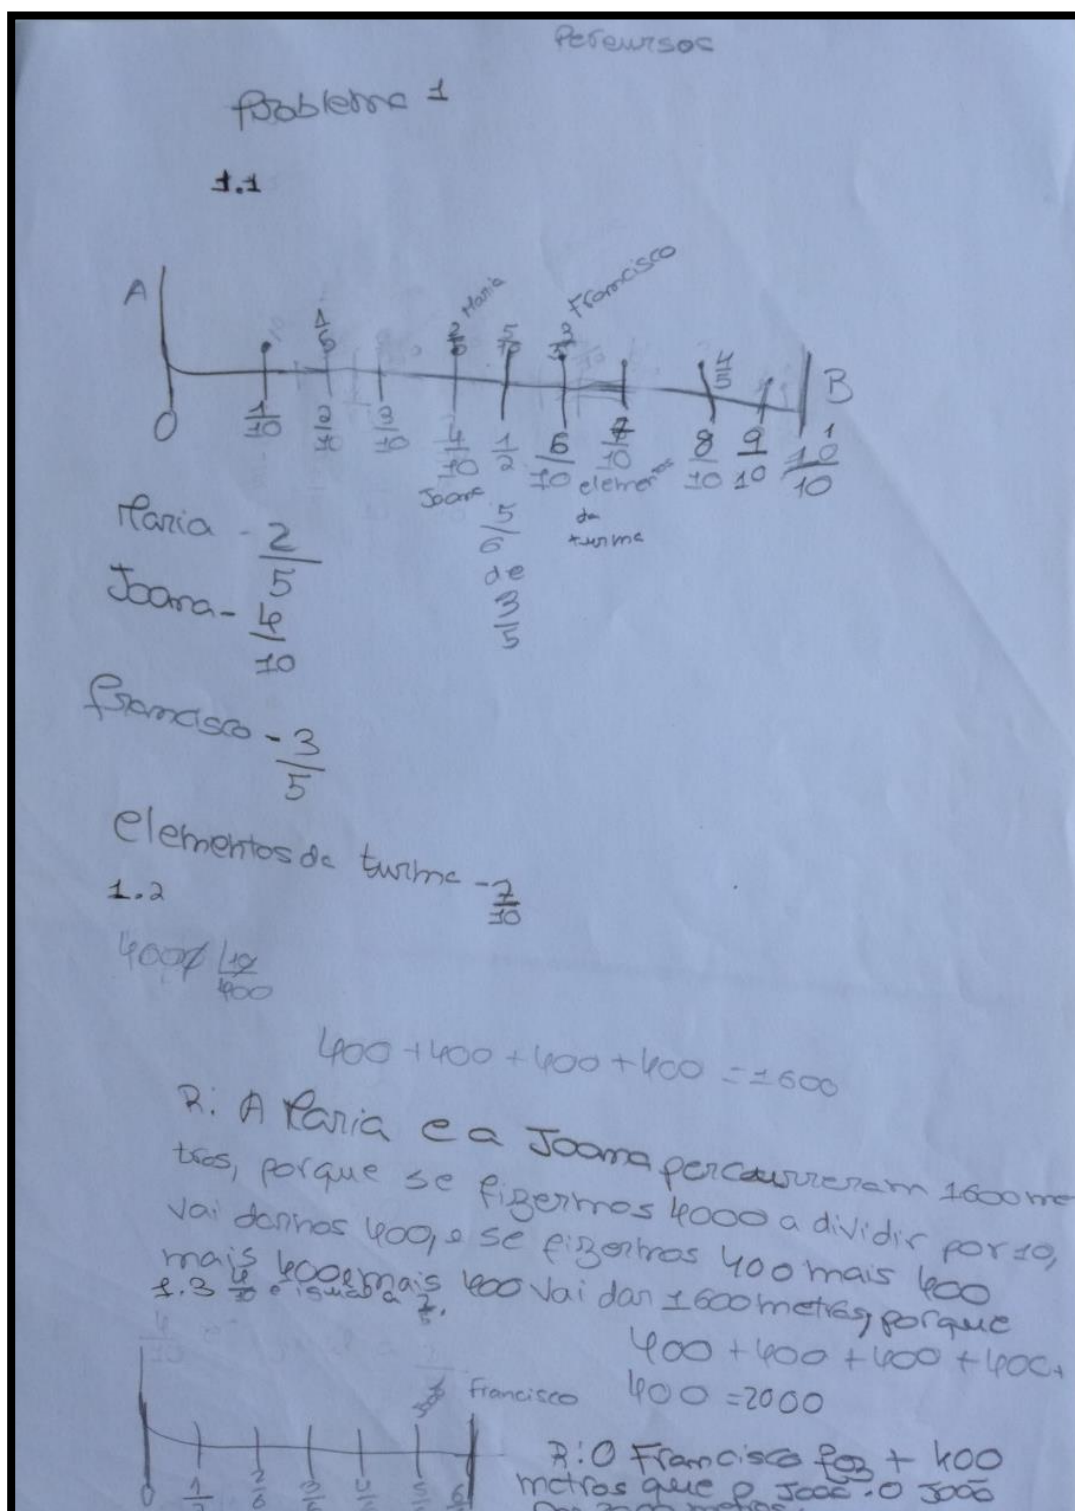 Percursos
Problema 1
1.1
A
1/5
2/5 Maria
5/10
3/5 Francisco
4/5
B
0
1/10
2/10
3/10
4/10
1/2
6/10
7/10
8/10
9/10
1
10/10
Joana
elementos
da
turma
5/6
de
3/5
Maria - 2/5
Joana - 4/10
Francisco - 3/5
elementos da turma - 7/10
1.2
4000 10
400
400 + 400 + 400 + 400 = 1600
R: A Maria e a Joana percurreram 1600 me
tros, porque se fizermos 4000 a dividir por 10,
vai darnos 400, e se fizermos 400 mais 400
mais 400 e mais 400 vai dar 1600 metros, porque
1.3 4/10 é igual a
400 + 400 + 400 + 400 +
400 = 2000
Francisco
0
2/6
3/6
R: O Francisco fez + 400
metros que o João. O João